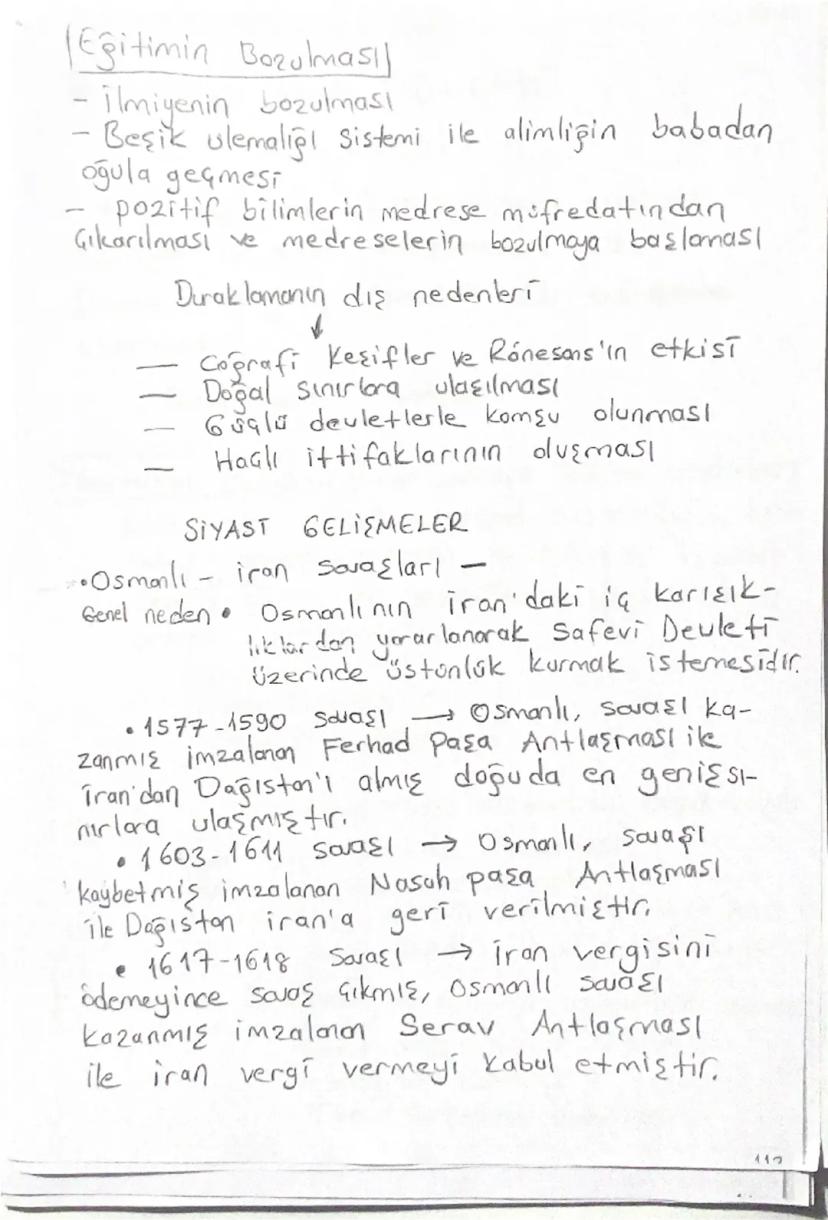 Eğitimin Bozulması
- İlmiyenin bozulması
- Beşik ulemalığı sistemi ile alimliğin babadan
oğula geçmesi
- pozitif bilimlerin medrese müfredatından
çıkarılması ve medreselerin bozulmaya başlaması
Duraklamanın dış nedenleri
↓
— Coğrafi Keşifler ve Rönesans'ın etkisi
— Doğal sınırlara ulaşılması
— Güçlü devletlerle komşu olunması
— Haçlı ittifaklarının oluşması
SİYASİ GELİŞMELER
• Osmanlı - iran savaşları —
Genel neden • Osmanlının İran'daki iç karışık-
lıklardan yararlanarak Safevi Devleti
üzerinde üstünlük kurmak istemesidir.
• 1577-1590 savaşı → Osmanlı, savaşı ka-
zanmış imzalanan Ferhad Paşa Antlaşması ile
İran'dan Dağıstan'ı almış doğuda en geniş sı-
nırlara ulaşmıştır.
• 1603-1611 savaşı → Osmanlı, savaşı
kaybetmiş imzalanan Nasuh paşa Antlaşması
ile Dağıstan iran'a geri verilmiştir.
• 1617-1618 Savaşı → İran vergisini
ödemeyince savaş çıkmış, Osmanlı savaşı
kazanmış imzalanan Serav Antlaşması
ile iran vergi vermeyi kabul etmiştir.